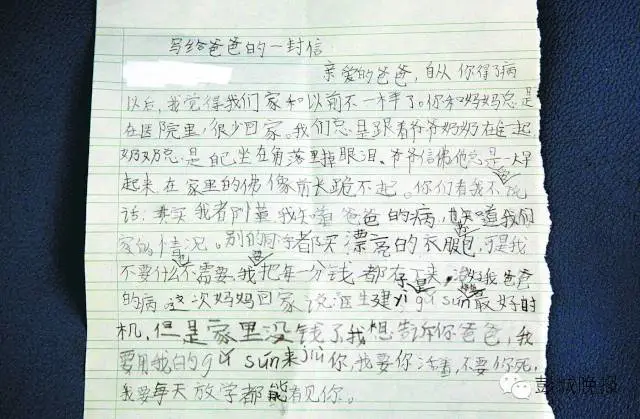 写给爸爸的一封信
亲爱的爸爸,自从你得了病
以后,我觉得我们家和以前不一样了。你和妈妈总是
在医院里,很少回家。我们总是跟着爷爷奶奶在一起,
奶奶总是自己坐在角落里掉眼泪、爷爷信佛他总是一大早
起来在家里的佛像前长跪不起。你们看我不说
话,其实我都懂我知道爸爸的病,也知道我们
家的情况。别的同学都买漂亮的衣服,可是我
不要什么不需要,我把每一分钱都存了下来,爸爸
的病这次妈妈回家说医生建yi gǔ suǐ最好时
机,但是家里没钱了我想告诉你爸爸,我
要用我的gǔ suǐ来jiù你,我要你活着,不要你死,
我要每天放学都能看见你。
彭城晚报